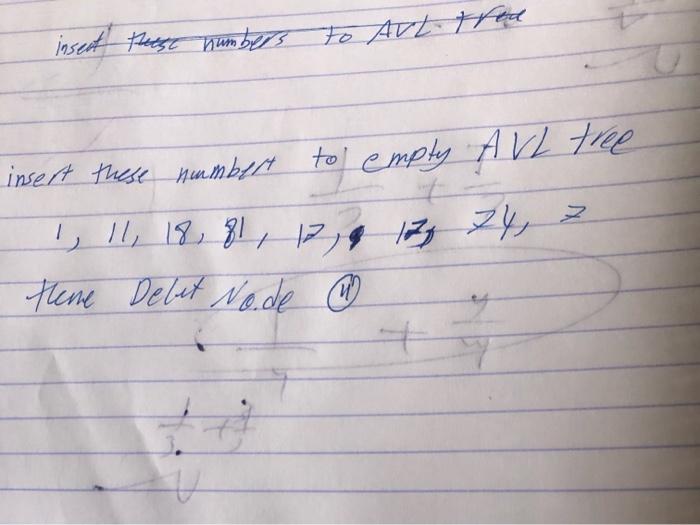 insert these numbers to AVL tree
insert these nummbert to empty AVL tree
1, 11, 18, 81, 17, 17, 74, 7
thene Delet Node